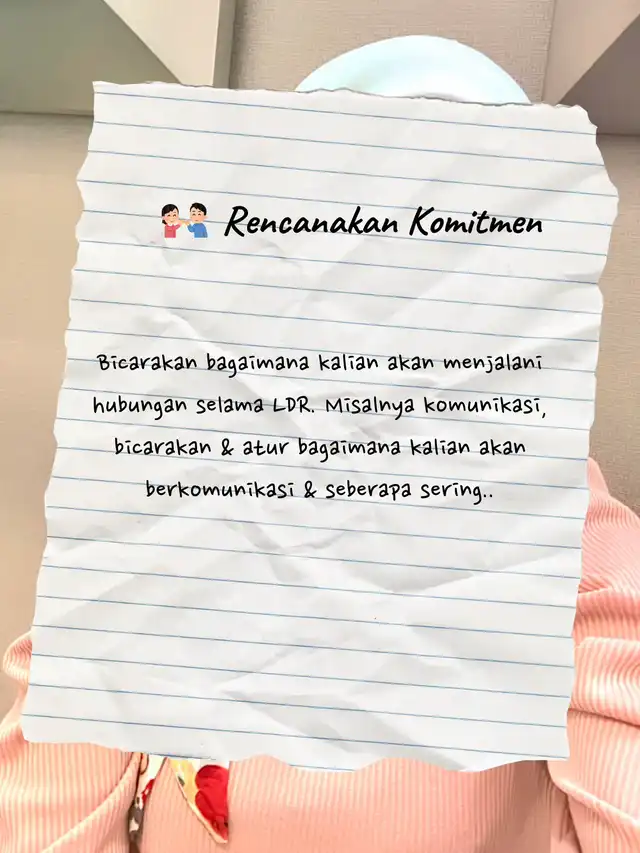 Rencanakan Komitmen
Bicarakan bagaimana kalian akan menjalani
hubungan selama LDR. Misalnya komunikasi,
bicarakan & atur bagaimana kalian akan
berkomunikasi & seberapa sering..